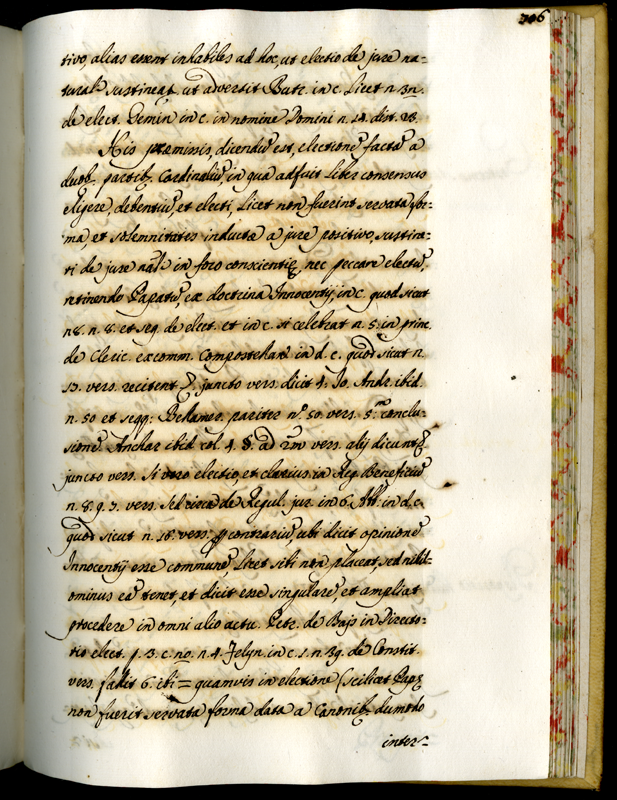 306
tivo, alias essent inhabiles ad hoc, ut electio de jure na-
turali sustineat, ut advertit Butr. in c. Licet n. 3n.
de elect. Gemin. in c. in nomine Domini n. 14. dist. 23.
His præmissis, dicendũ est, electionẽ factã a
duob. partib. Cardinaliũ, in qua adfuit liber consensus
eligere, debentiũ, et electi, licet non fuerint servata for-
ma, et solemnitates inductæ a jure positivo, sustine-
ri de jure nãli in foro conscientiæ, nec peccare electũ,
retinendo Papatũ, ex doctrina Innocentij, in c. quod sicut
n. 8. et seq. de elect. et in c. si celebrat n. 5. in princ.
de Cleric. excomm. Compostellan. in d. c. quod sicut n.
13. vers. recitent juncto vers. dicit 4. Jo. Andr. ibid.
n. 50 et seqq: Bellamer. pariter nº 50. vers. 5.m conclu-
sionẽ Anchar. ibid. col. 4. §. ad 2m vers. alij dicunt
juncto vers. Si vero electio, et clarius in Reg. Beneficiũ
n. 8. q. 3. vers. Sed circa de Regul. jur. in 6. Abb. in d. c.
quod sicut n. 18. vers. contrariũ, ubi dicit opinionẽ
Innocentij esse communẽ, licet sibi non placeat, sed nihil-
ominus eã tenet, et dicit esse singularẽ, et ampliat
procedere in omni alio actu. Petr. de Bajs in Directo-
rio elect. p. 3. c. no. n. 4. Felyn. in c. 1. n. 39. de Constit.
vers. fallit 6. ibi = quamvis in electione (scilicet Papæ
non fuerit servata forma data a Canonib. dummodo
inter-